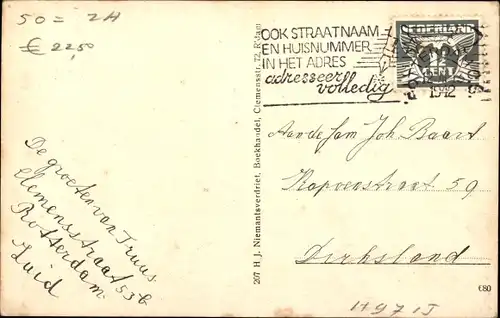 50 = 2H
€ 22,50
OOK STRAATNAAM
EN HUISNUMMER
IN HET ADRES
adresseer
volledig
NEDERLAND
1942
De groeten van Truus
Clemensstraat 53b
Rotterdam
Zuid
207 H J. Niemantsverdriet, Boekhandel, Clemensstr. 72, R'dam
Aan de fam Joh Baart
59
Dirksland
680
H97